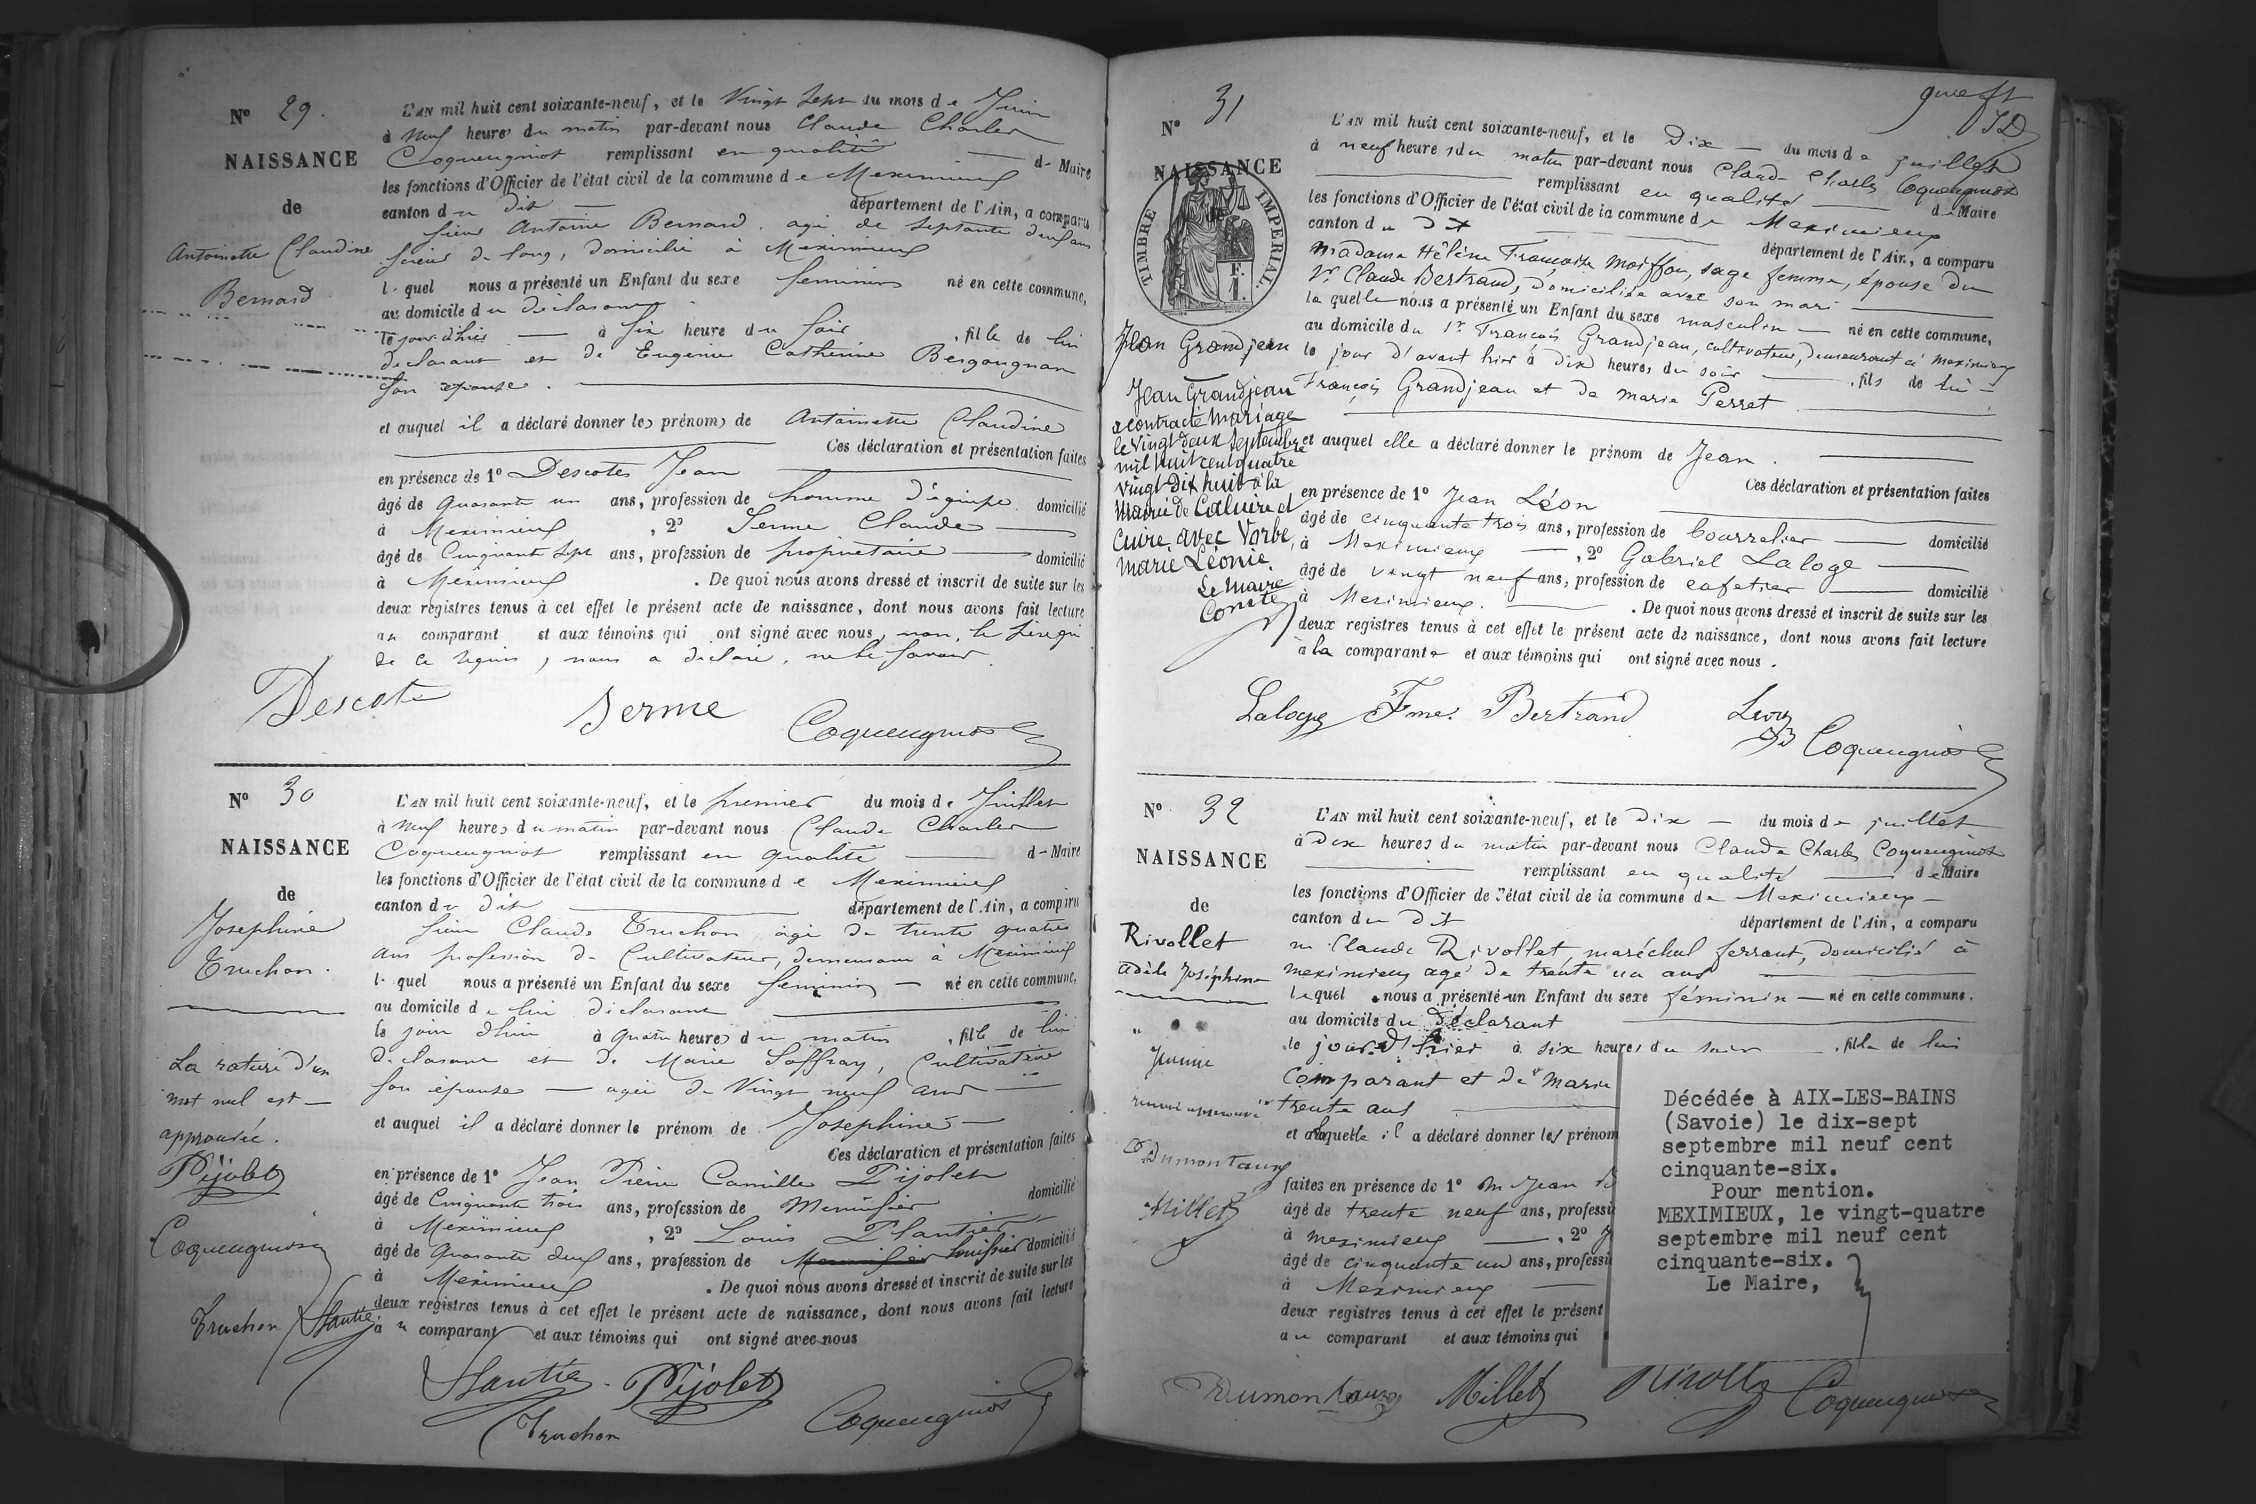 N° 29.
NAISSANCE
de
Antoinette Claudine
Bernard
L'AN mil huit cent soixante-neuf, et le Vingt Sept du mois de Juin
à Neuf heures du matin par-devant nous Claude Charles
Coquengniot remplissant en qualité de Maire
les fonctions d'Officier de l'état civil de la commune de Meximieux
canton du dit département de l'Ain, a comparu
sieur Antoine Bernard, agé de septante deux ans
scieur de long, domicilié à Meximieux
lequel nous a présenté un Enfant du sexe feminin né en cette commune,
au domicile du déclarant
le jour d'hier à six heure du soir, fille de lui
déclarant et de Eugénie Catherine Bergougnan
son épouse.
et auquel il a déclaré donner les prénoms de Antoinette Claudine
Ces déclaration et présentation faites
en présence de 1° Descotes Jean
âgé de quarante un ans, profession de homme d'équipe domicilié
à Meximieux, 2° Serme Claude
âgé de Cinquante Sept ans, profession de propriétaire domicilié
à Meximieux. De quoi nous avons dressé et inscrit de suite sur les
deux registres tenus à cet effet le présent acte de naissance, dont nous avons fait lecture
au comparant et aux témoins qui ont signé avec nous, non, le père qui
de ce requis, nous a déclaré, ne le savoir.
Descote Serme Coquengniot
N° 30
NAISSANCE
de
Josephine
Truchon.
La rature d'un
mot nul est
approuvée.
Pijolet
Coquengniot
Truchon Plantier
L'AN mil huit cent soixante-neuf, et le premier du mois de Juillet
à Neuf heures du matin par-devant nous Claude Charles
Coquengniot remplissant en qualité de Maire
les fonctions d'Officier de l'état civil de la commune de Meximieux
canton du dit département de l'Ain, a comparu
sieur Claude Truchon agé de trente quatre
ans profession de Cultivateur, demeurant à Meximieux
lequel nous a présenté un Enfant du sexe feminin né en cette commune,
au domicile de lui déclarant
le jour d'hier à quatre heures du matin, fille de lui
déclarant et de Marie Soffray, Cultivatrice
son épouse agée de Vingt neuf ans
et auquel il a déclaré donner le prénom de Josephine
Ces déclaration et présentation faites
en présence de 1° Jean Pierre Camille Pijolet
âgé de Cinquante trois ans, profession de Menuisier domicilié
à Meximieux, 2° Louis Plantier
âgé de Quarante deux ans, profession de Menuisier huissier domicilié
à Meximieux. De quoi nous avons dressé et inscrit de suite sur les
deux registres tenus à cet effet le présent acte de naissance, dont nous avons fait lecture
au comparant et aux témoins qui ont signé avec nous
Plantier Pijolet
Truchon Coquengniot
N° 31
NAISSANCE
TIMBRE IMPERIAL.
Jean Grandjean
Jean Grandjean
a contracté mariage
le vingt deux septembre
mil huit cent quatre
vingt dix huit à la
Mairie de Caluire et
Cuire, avec Varbe,
Marie Léonie.
Le Maire
L'AN mil huit cent soixante-neuf, et le Dix du mois de juillet
à neuf heures du matin par-devant nous Claude Charles Coquengniot
remplissant en qualité de Maire
les fonctions d'Officier de l'état civil de la commune de Meximieux
canton du dit département de l'Ain, a comparu
Madame Hélène Françoise Moiffon, sage femme, épouse du
Sr. Claude Bertrand, domiciliée avec son mari
laquelle nous a présenté un Enfant du sexe masculin né en cette commune,
au domicile du Sr. François Grandjean, cultivateur, demeurant à Meximieux
le jour d'avant hier à dix heures du soir, fils de lui
François Grandjean et de Marie Perret
et auquel elle a déclaré donner le prénom de Jean.
Ces déclaration et présentation faites
en présence de 1° Jean Léon
âgé de cinquante trois ans, profession de bourrelier domicilié
à Meximieux, 2° Gabriel Laloge
âgé de vingt neuf ans, profession de cafetier domicilié
à Meximieux. De quoi nous avons dressé et inscrit de suite sur les
deux registres tenus à cet effet le présent acte de naissance, dont nous avons fait lecture
à la comparante et aux témoins qui ont signé avec nous.
Laloge Fme. Bertrand Léon Coquengniot
N° 32
NAISSANCE
de
Rivollet
Adèle Joséphine
Dumontaux
Millet
L'AN mil huit cent soixante-neuf, et le Dix du mois de juillet
à Dix heures du matin par-devant nous Claude Charles Coquengniot
remplissant en qualité de Maire
les fonctions d'Officier de l'état civil de la commune de Meximieux
canton du dit département de l'Ain, a comparu
m. Claude Rivollet, maréchal ferrant, domicilié à
Meximieux agé de trente un ans
lequel nous a présenté un Enfant du sexe féminin né en cette commune.
au domicile du déclarant
le jour d'hier à six heures du soir, fille de lui
Comparant et de Marie
trente ans
et a laquelle il a déclaré donner les prénom
faites en présence de 1° m Jean
âgé de trente neuf ans, professi
à Meximieux, 2°
âgé de cinquante un ans, professi
à Meximieux
deux registres tenus à cet effet le présent
au comparant et aux témoins qui
Décédée à AIX-LES-BAINS
(Savoie) le dix-sept
septembre mil neuf cent
cinquante-six.
Pour mention.
MEXIMIEUX, le vingt-quatre
septembre mil neuf cent
cinquante-six.
Le Maire,
Dumontaux Millet Rivollet Coquengniot